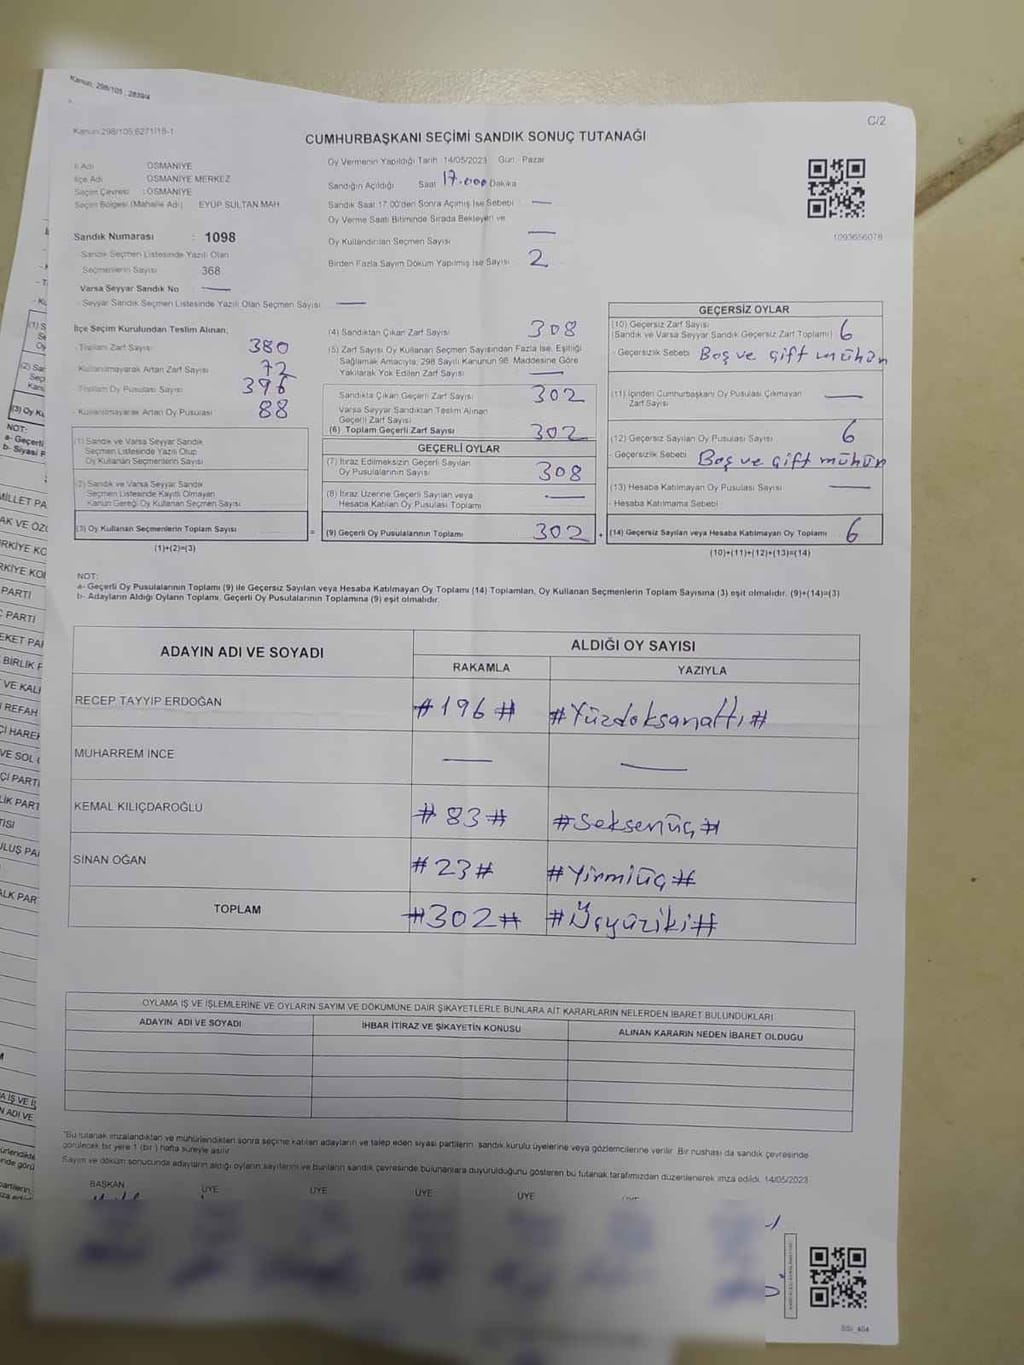 Kanun: 298/105
Kanun:298/105;6271/18-1
C/2
CUMHURBAŞKANI SEÇİMİ SANDIK SONUÇ TUTANAĞI
İl Adı OSMANİYE
İlçe Adı OSMANİYE MERKEZ
Seçim Çevresi : OSMANİYE
Seçim Bölgesi (Mahalle Adı) EYÜP SULTAN MAH
Sandık Numarası : 1098
Sandık Seçmen Listesinde Yazılı Olan
Seçmenlerin Sayısı 368
Varsa Seyyar Sandık No —
Seyyar Sandık Seçmen Listesinde Yazılı Olan Seçmen Sayısı —
Oy Vermenin Yapıldığı Tarih 14/05/2023 Gün: Pazar
Sandığın Açıldığı Saat 17.00 Dakika
Sandık Saat 17.00'den Sonra Açılmış İse Sebebi —
Oy Verme Saati Bitiminde Sırada Bekleyen ve
Oy Kullandırılan Seçmen Sayısı —
Birden Fazla Sayım Döküm Yapılmış İse Sayısı 2
1093656078
İlçe Seçim Kurulundan Teslim Alınan;
Toplam Zarf Sayısı 380
Kullanılmayarak Artan Zarf Sayısı 72
Toplam Oy Pusulası Sayısı 396
Kullanılmayarak Artan Oy Pusulası 88
(1) Sandık ve Varsa Seyyar Sandık
Seçmen Listesinde Yazılı Olup
Oy Kullanan Seçmenlerin Sayısı
(2) Sandık ve Varsa Seyyar Sandık
Seçmen Listesinde Kayıtlı Olmayan
Kanun Gereği Oy Kullanan Seçmen Sayısı
(3) Oy Kullanan Seçmenlerin Toplam Sayısı
(1)+(2)=(3)
=
(4) Sandıktan Çıkan Zarf Sayısı 308
(5) Zarf Sayısı Oy Kullanan Seçmen Sayısından Fazla İse, Eşitliği
Sağlamak Amacıyla; 298 Sayılı Kanunun 98. Maddesine Göre
Yakılarak Yok Edilen Zarf Sayısı —
Sandıkta Çıkan Geçerli Zarf Sayısı 302
Varsa Seyyar Sandıktan Teslim Alınan
Geçerli Zarf Sayısı
(6) Toplam Geçerli Zarf Sayısı 302
GEÇERLİ OYLAR
(7) İtiraz Edilmeksizin Geçerli Sayılan
Oy Pusulalarının Sayısı 308
(8) İtiraz Üzerine Geçerli Sayılan veya
Hesaba Katılan Oy Pusulası Toplamı —
(9) Geçerli Oy Pusulalarının Toplamı 302
+
GEÇERSİZ OYLAR
(10) Geçersiz Zarf Sayısı
(Sandık ve Varsa Seyyar Sandık Geçersiz Zarf Toplamı) 6
Geçersizlik Sebebi Boş ve çift mühün
(11) İçinden Cumhurbaşkanı Oy Pusulası Çıkmayan
Zarf Sayısı —
(12) Geçersiz Sayılan Oy Pusulası Sayısı 6
Geçersizlik Sebebi Boş ve çift mühün
(13) Hesaba Katılmayan Oy Pusulası Sayısı —
Hesaba Katılmama Sebebi
(14) Geçersiz Sayılan veya Hesaba Katılmayan Oy Toplamı 6
(10)+(11)+(12)+(13)=(14)
NOT:
a- Geçerli Oy Pusulalarının Toplamı (9) ile Geçersiz Sayılan veya Hesaba Katılmayan Oy Toplamı (14) Toplamları, Oy Kullanan Seçmenlerin Toplam Sayısına (3) eşit olmalıdır. (9)+(14)=(3)
b- Adayların Aldığı Oyların Toplamı, Geçerli Oy Pusulalarının Toplamına (9) eşit olmalıdır.
ADAYIN ADI VE SOYADI ALDIĞI OY SAYISI
RAKAMLA YAZIYLA
RECEP TAYYİP ERDOĞAN #196# #Yüzdoksanaltı#
MUHARREM İNCE — —
KEMAL KILIÇDAROĞLU #83# #Seksenüç#
SİNAN OĞAN #23# #Yirmiüç#
TOPLAM #302# #Üçyüziki#
OYLAMA İŞ VE İŞLEMLERİNE VE OYLARIN SAYIM VE DÖKÜMÜNE DAİR ŞİKAYETLERLE BUNLARA AİT KARARLARIN NELERDEN İBARET BULUNDUKLARI
ADAYIN ADI VE SOYADI İHBAR İTİRAZ VE ŞİKAYETİN KONUSU ALINAN KARARIN NEDEN İBARET OLDUĞU
"Bu tutanak imzalandıktan ve mühürlendikten sonra seçime katılan adayların ve talep eden siyasi partilerin, sandık kurulu üyelerine veya gözlemcilerine verilir. Bir nüshası da sandık çevresinde
görülecek bir yere 1 (bir) hafta süreyle asılır.
Sayım ve döküm sonucunda adayların aldığı oyların sayılarını ve bunların sandık çevresinde bulunanlara duyurulduğunu gösteren bu tutanak tarafımızdan düzenlenerek imza edildi. 14/05/2023
BAŞKAN ÜYE ÜYE ÜYE ÜYE